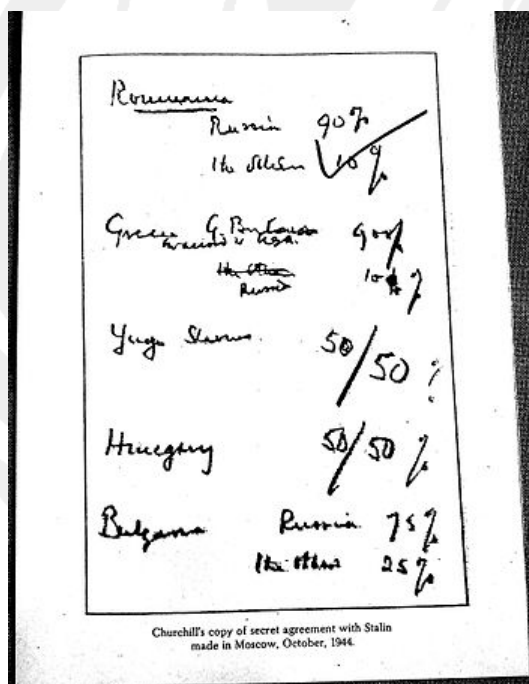 Roumania
Russia 90%
The others 10%
Greece G. Britain 90%
in accord w USA
The others
Russia 10%
Yugo Slavia 50/50 %
Hungary 50/50 %
Bulgaria Russia 75%
The others 25%
Churchill's copy of secret agreement with Stalin
made in Moscow, October, 1944.